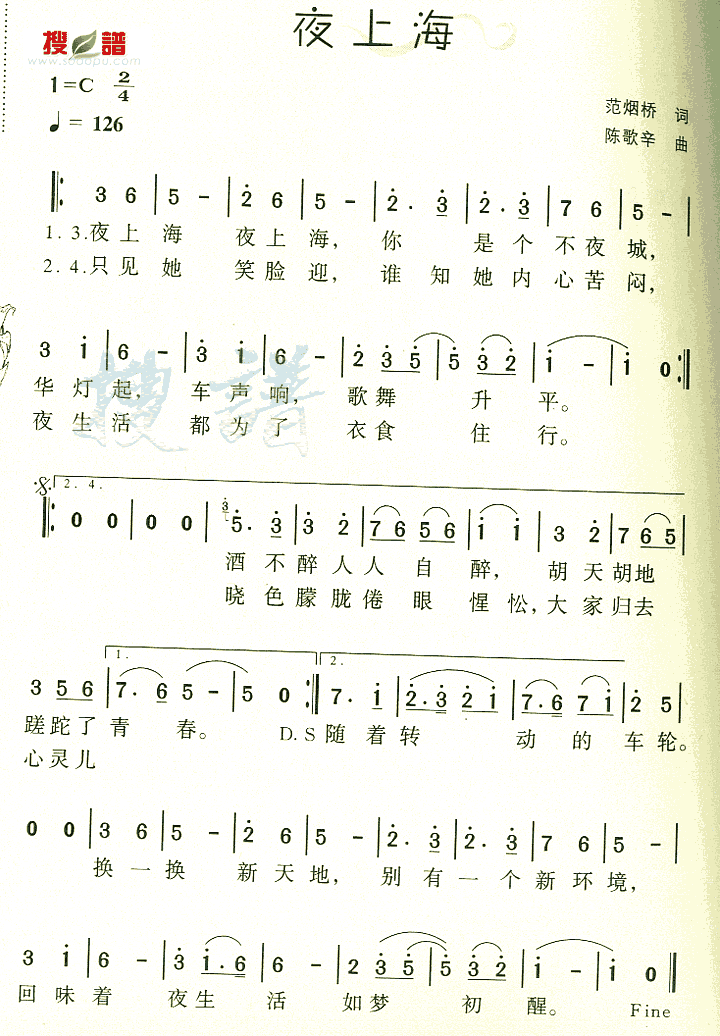 夜上海
搜谱
www.sooopu.com
1=C 2/4
♩= 126
范烟桥 词
陈歌辛 曲
3 6 | 5 - | 2 6 | 5 - | 2 . 3 | 2 . 3 | 7 6 | 5 - |
1.3.夜上海 夜上海, 你 是个不夜城,
2.4.只见她 笑脸迎, 谁知她内心苦闷,
3 1 | 6 - | 3 1 | 6 - | 2 3 5 | 5 3 2 | 1 - | 1 0 :|
华灯起, 车声响, 歌舞 升 平。
夜生活 都为了 衣食 住 行。
2. 4.
0 0 | 0 0 | 3 5 . 3 | 3 2 | 7 6 5 6 | 1 1 | 3 2 | 7 6 5 |
酒不醉人人自醉, 胡天胡地
晓色朦胧倦眼惺忪,大家归去
1. 2.
3 5 6 | 7 . 6 5 - | 5 0 :| 7 . 1 | 2 . 3 2 1 | 7 . 6 7 1 | 2 5 |
蹉跎了青 春。 D.S 随着转 动的车轮。
心灵儿
0 0 | 3 6 | 5 - | 2 6 | 5 - | 2 . 3 | 2 . 3 | 7 6 | 5 - |
换一换 新天地, 别有一个新环境,
3 1 | 6 - | 3 1 . 6 | 6 - | 2 3 5 | 5 3 2 | 1 - | 1 0 ‖
回味着 夜生活 如梦 初 醒。 Fine